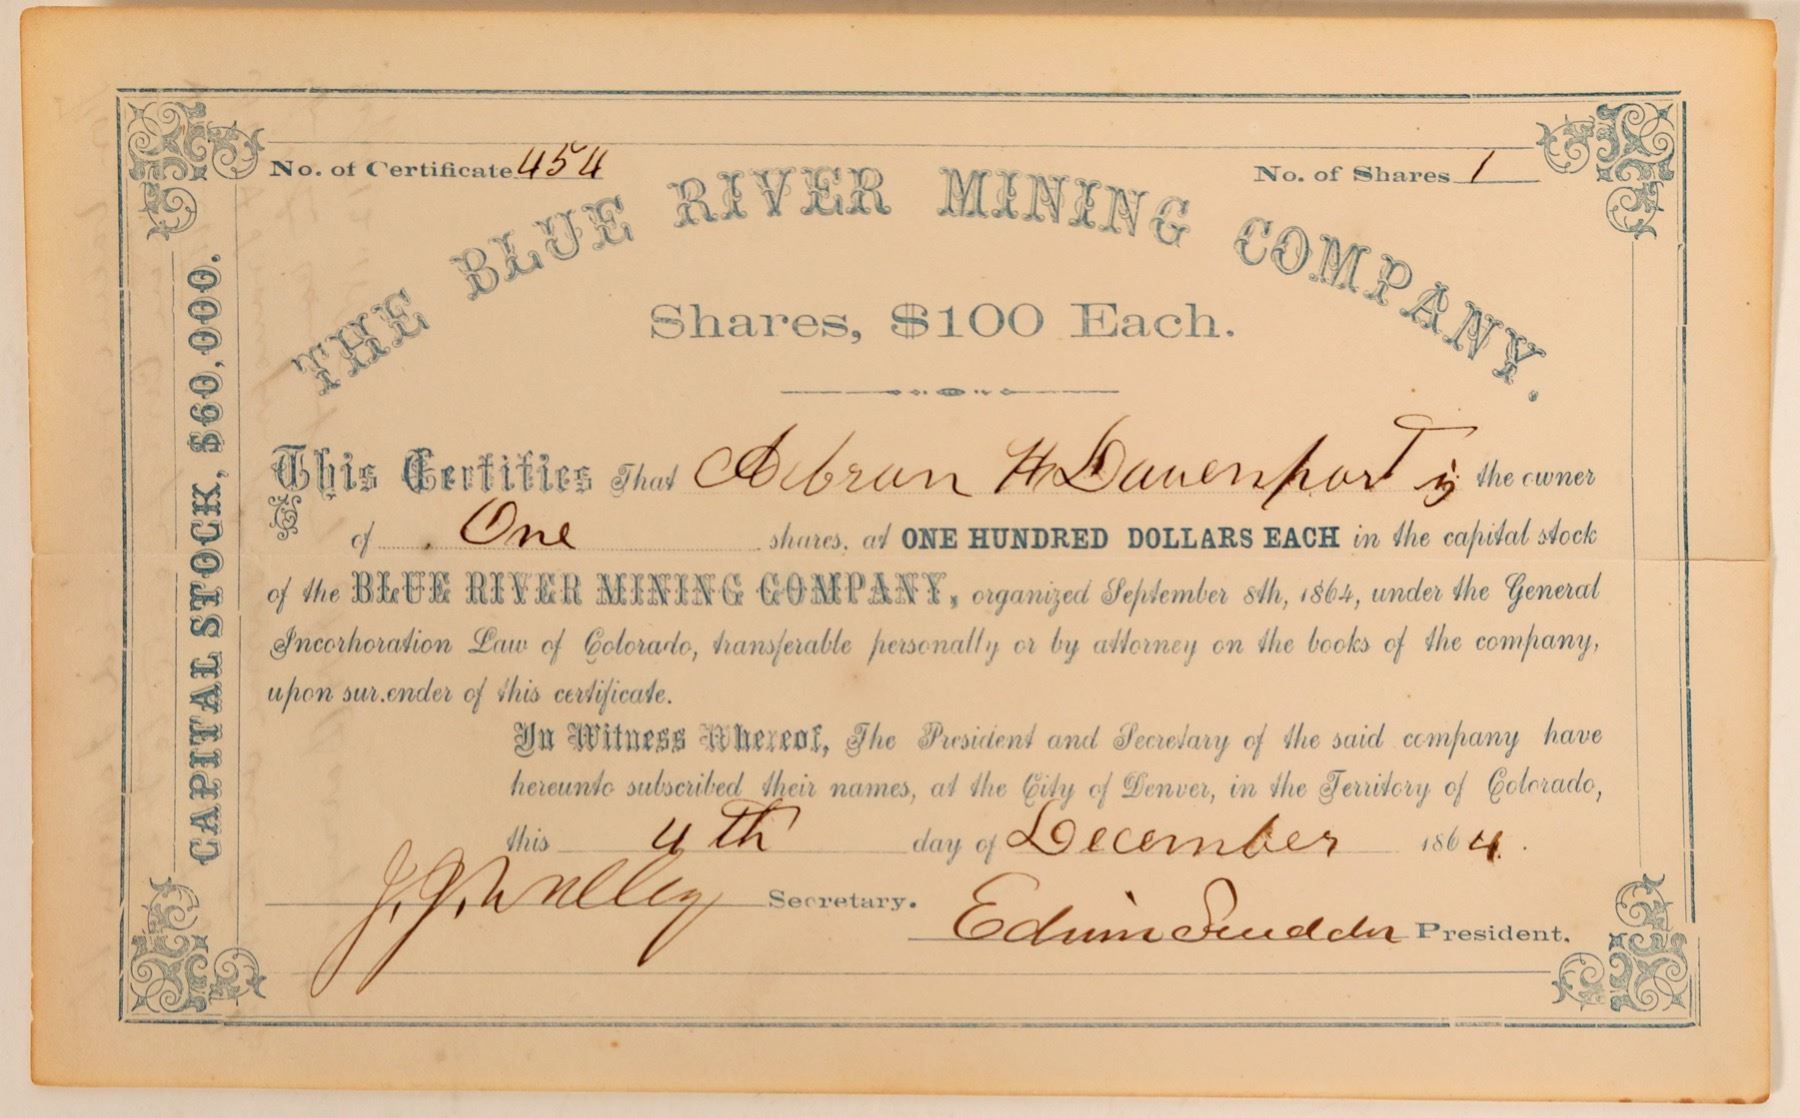 No. of Certificate 454
No. of Shares 1
THE BLUE RIVER MINING COMPANY.
Shares, $100 Each.
CAPITAL STOCK, $60,000.
This Certifies That H Davenport is the owner
of One shares, at ONE HUNDRED DOLLARS EACH in the capital stock
of the BLUE RIVER MINING COMPANY, organized September 8th, 1864, under the General
Incorporation Law of Colorado, transferable personally or by attorney on the books of the company,
upon sur.ender of this certificate.
In Witness Whereof, The President and Secretary of the said company have
hereunto subscribed their names, at the City of Denver, in the Territory of Colorado,
this 4th day of December 1864.
J. J. Secretary.
Edwin Scudder President.